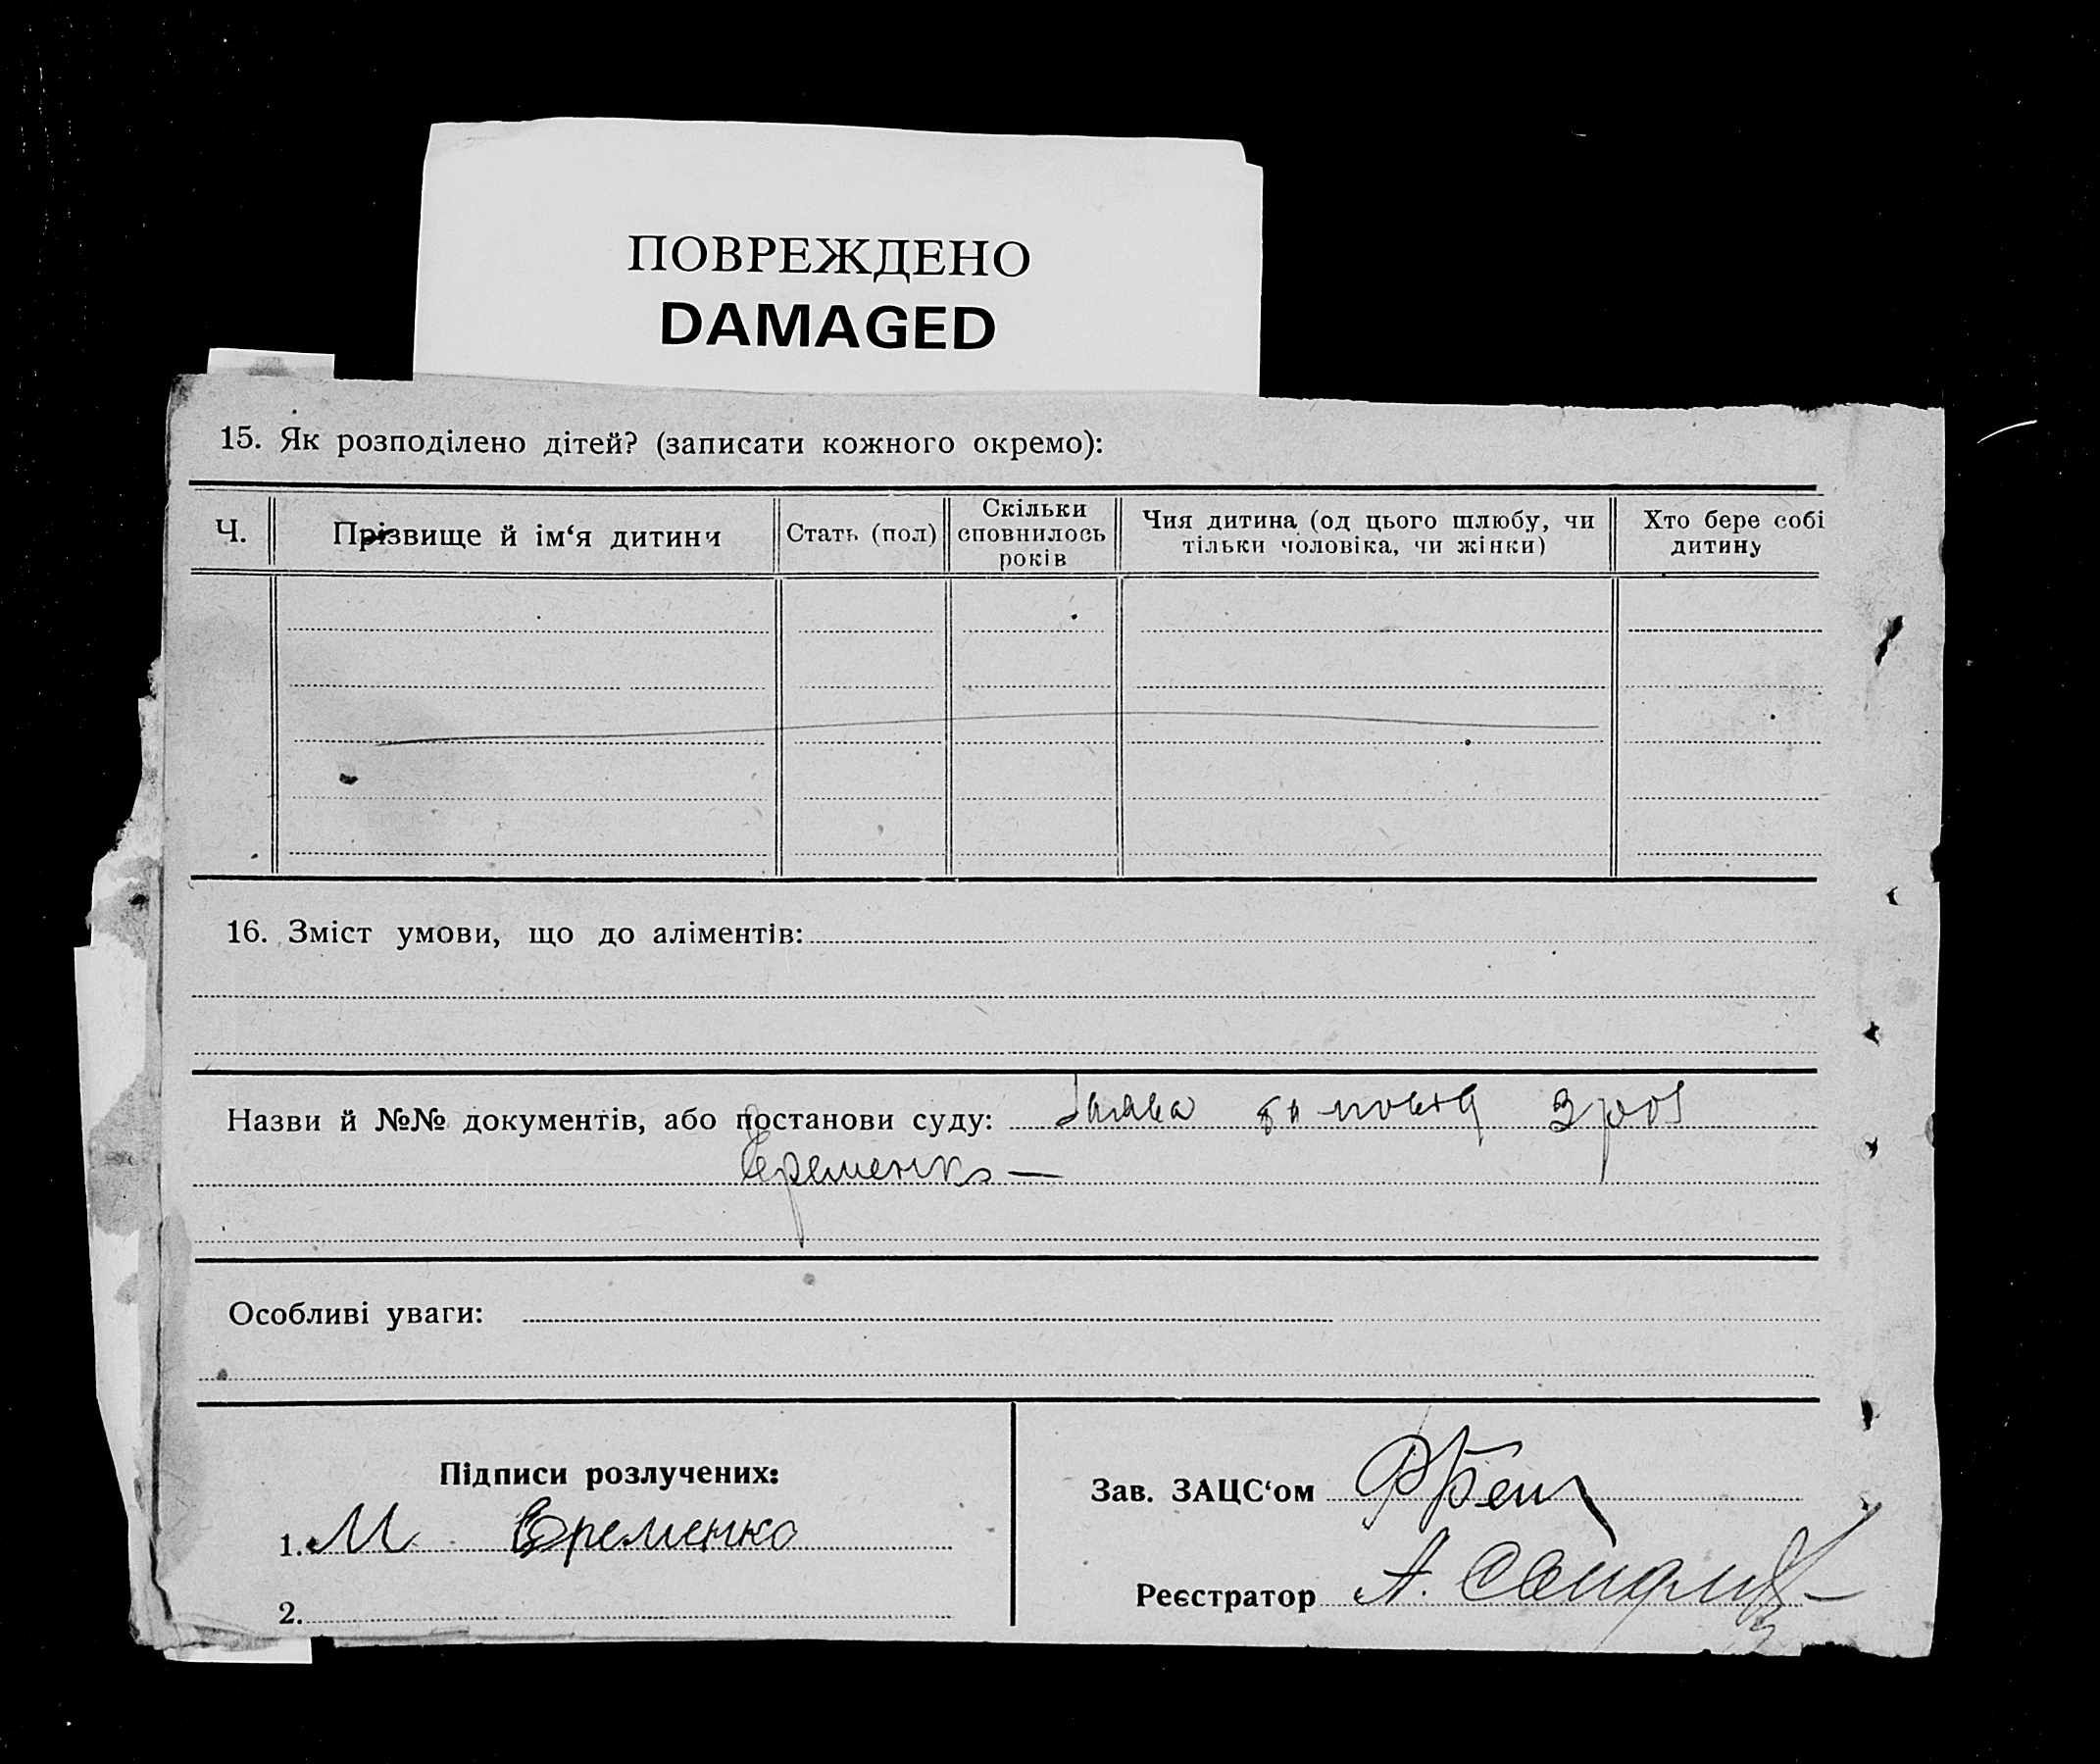 ПОВРЕЖДЕНО
DAMAGED
15. Як розподілено дітей? (записати кожного окремо):
Ч.
Прізвище й ім‘я дитини
Стать (пол)
Скільки
сповнилось
років
Чия дитина (од цього шлюбу, чи
тільки чоловіка, чи жінки)
Хто бере собі
дитину
16. Зміст умови, що до аліментів:
Назви й №№ документів, або постанови суду:
Еременко —
Особливі уваги:
Підписи розлучених:
1. М Еременко
2.
Зав. ЗАЦС‘ом
Реєстратор А.